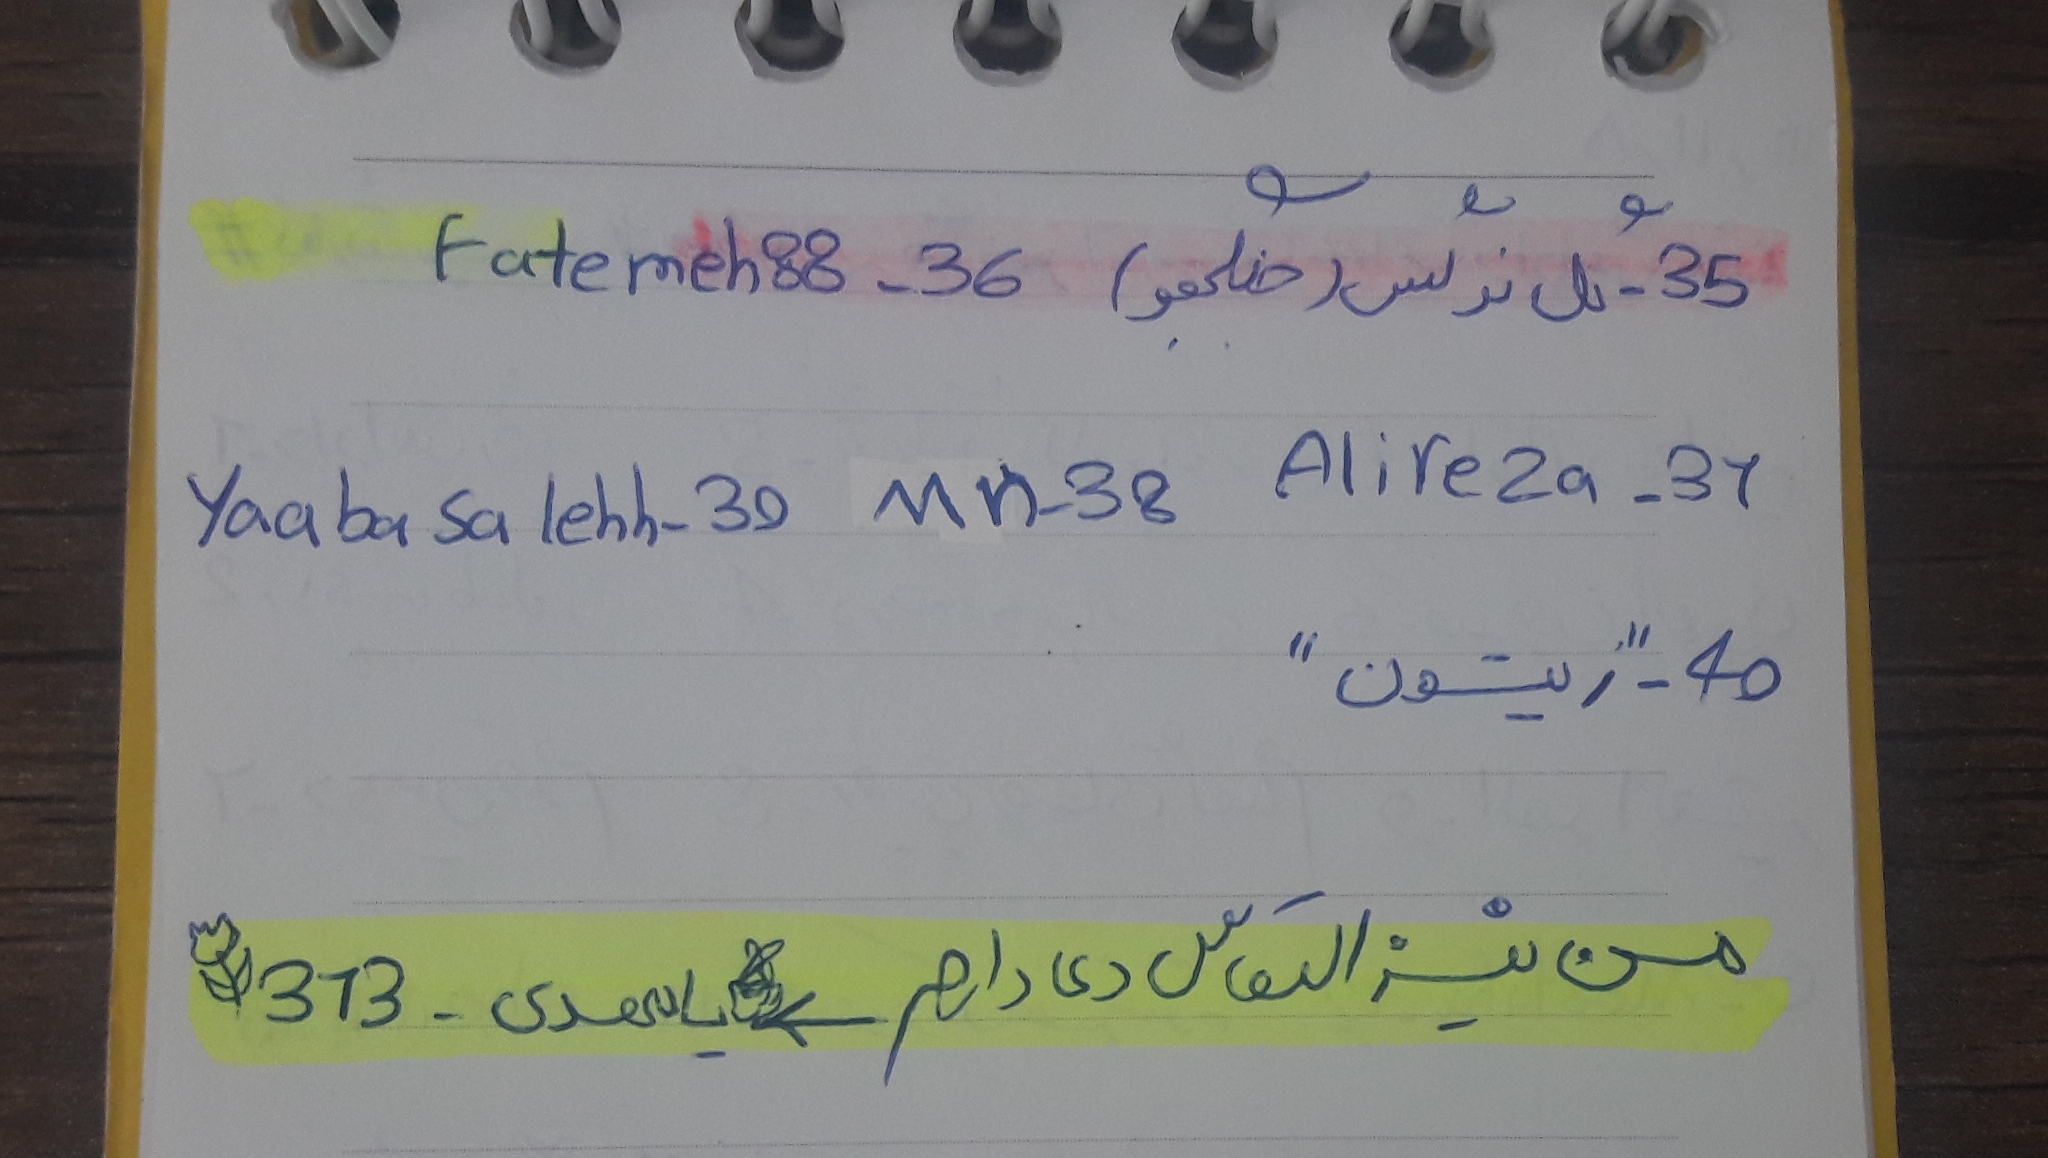 35- گل نرگس (خداحجو) 36- Fatemeh88
37- Alireza 38- Mn 39- Yaabasalehh
40- "زیتون"
من نیز التماس دعا دارم ← یا مهدی - 313